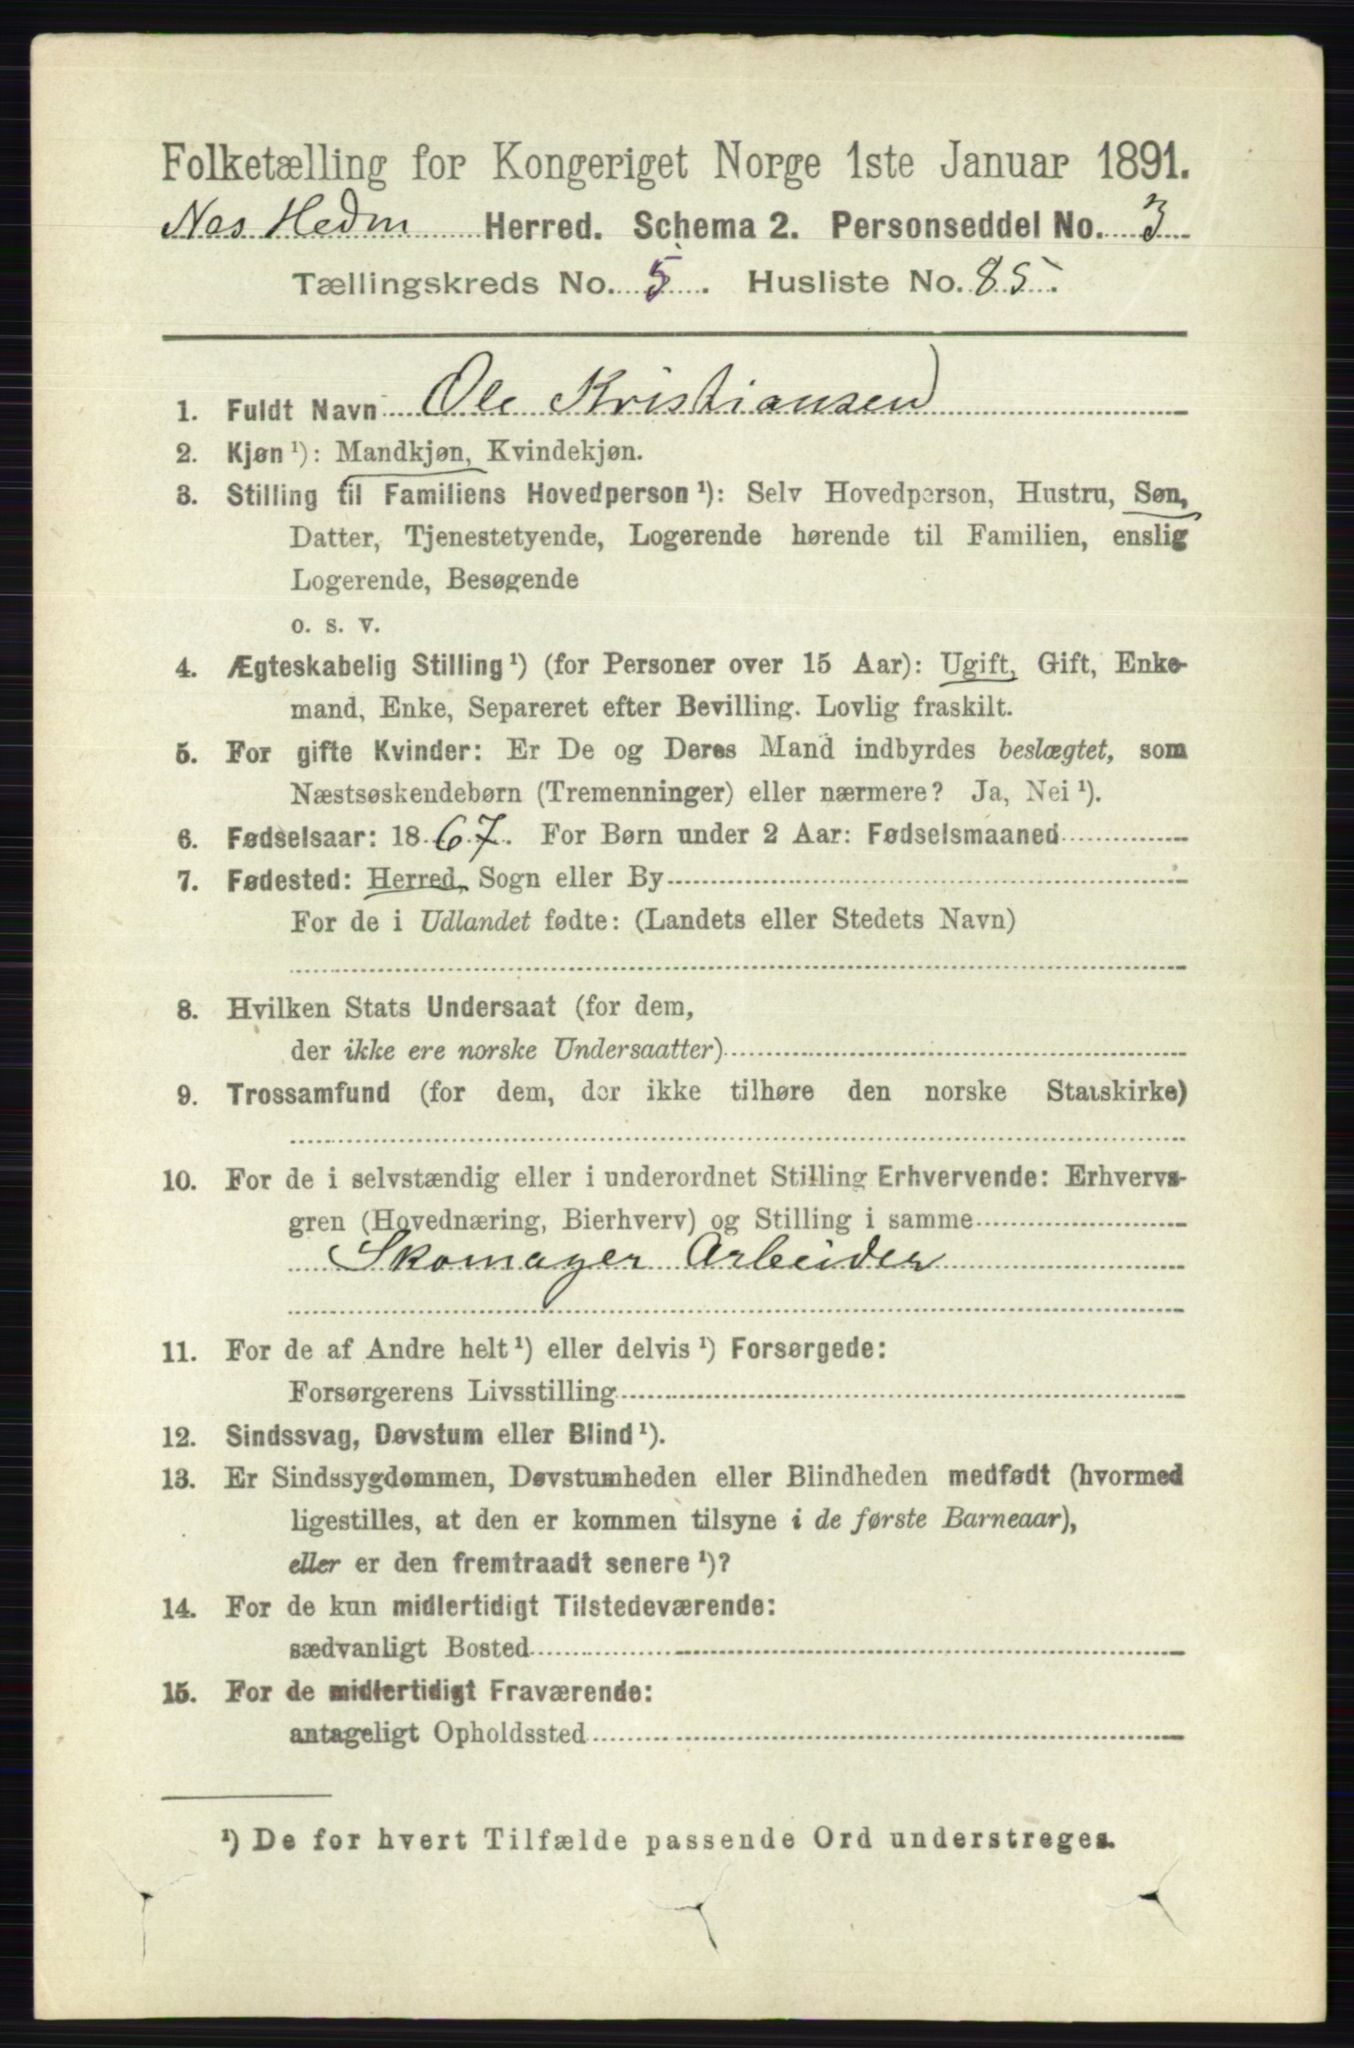 Folketælling for Kongeriget Norge 1ste Januar 1891.
Nes Hedm Herred. Schema 2. Personseddel No. 3
Tællingskreds No. 5. Husliste No. 85.
1. Fuldt Navn Ole Kristiansen
2. Kjøn ¹): Mandkjøn, Kvindekjøn.
3. Stilling til Familiens Hovedperson ¹): Selv Hovedperson, Hustru, Søn,
Datter, Tjenestetyende, Logerende hørende til Familien, enslig
Logerende, Besøgende
o. s. v.
4. Ægteskabelig Stilling ¹) (for Personer over 15 Aar): Ugift, Gift, Enke-
mand, Enke, Separeret efter Bevilling. Lovlig fraskilt.
5. For gifte Kvinder: Er De og Deres Mand indbyrdes beslægtet, som
Næstsøskendebørn (Tremenninger) eller nærmere? Ja, Nei ¹).
6. Fødselsaar: 1867. For Børn under 2 Aar: Fødselsmaaned
7. Fødested: Herred, Sogn eller By
For de i Udlandet fødte: (Landets eller Stedets Navn)
8. Hvilken Stats Undersaat (for dem,
der ikke ere norske Undersaatter)
9. Trossamfund (for dem, der ikke tilhøre den norske Statskirke)
10. For de i selvstændig eller i underordnet Stilling Erhvervende: Erhvervs-
gren (Hovednæring, Bierhverv) og Stilling i samme
Skomager Arbeider
11. For de af Andre helt ¹) eller delvis ¹) Forsørgede:
Forsørgerens Livsstilling
12. Sindssvag, Døvstum eller Blind ¹).
13. Er Sindssygdommen, Døvstumheden eller Blindheden medfødt (hvormed
ligestilles, at den er kommen tilsyne i de første Barneaar),
eller er den fremtraadt senere ¹)?
14. For de kun midlertidigt Tilstedeværende:
sædvanligt Bosted
15. For de midlertidigt Fraværende:
antageligt Opholdssted
¹) De for hvert Tilfælde passende Ord understreges.